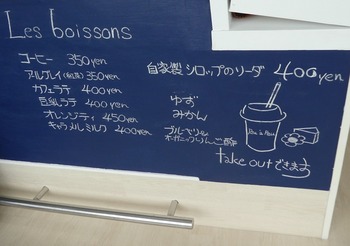 Les boissons
コーヒー 350yen
アールグレイ(紅茶) 350yen
カフェラテ 400yen
豆乳ラテ 400yen
オレンジティ 450yen
キャラメルミルク 400yen
自家製シロップのソーダ 400yen
ゆず
みかん
ブルーベリー
オーガニックりんご酢
take outできます